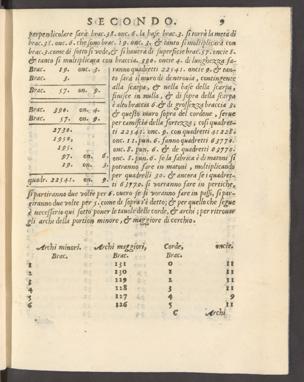 SECONDO. 9
perpendicolare sarà brac. 38. onc. 6. la base brac. 3. si torrà la metà di
brac. 38. onc. 6. che sono brac. 19. onc. 3. & tanto si multiplicarà con
brac. 3. come di sotto si vede, & si haverà di superficie brac. 57. oncie 8.
& tanto si multiplicarà con braccia. 390. oncie 4. di lunghezza fa-
Brac. 19. onc. 3.
Brac. 3.
Brac. 57. on. 9.
Brac. 390. on. 4.
Brac. 57. on. 9.
2730.
1950.
195.
97. on. 6.
19. on. 3.
quadr. 22541. on. 9.
ranno quadretti 22541. oncie 9. & tan-
to sarà il muro di dentro via, contingente
alla scarpa, & nella base della scarpa,
finisce in nulla, & di sopra della scarpa
è alto braccia 6 & di grossezza braccia 3.
& questo muro sopra del cordone, serve
per camisa della fortezza; così quadret-
ti 22541. onc. 9. con quadretti 41228.
onc. 11. pun. 6. fanno quadretti 63770.
onc. 8. pun. 6. & de quadretti 63770.
onc. 8. pun. 6. se la fabrica è di matoni si
potranno fare in matoni, multiplicando
per quadrelli 30. & ancora se i quadret-
ti 63770. si vorranno fare in pertiche,
si partiranno due volte per 6. overo se si vorranno fare in passi, si par-
tiranno due volte per 5. come di sopra s'è detto; & per quello che segue
è necessario quì sotto poner le tavole delle corde, & archi; per ritrovar
gli archi della portion minore, & maggiore di cerchio.
Archi minori. Archi maggiori, Corde, oncie.
Brac. Brac. Brac.
1 131 0 11
2 130 1 11
3 129 2 11
4 128 3 11
5 127 4 9
6 126 5 11
C Archi